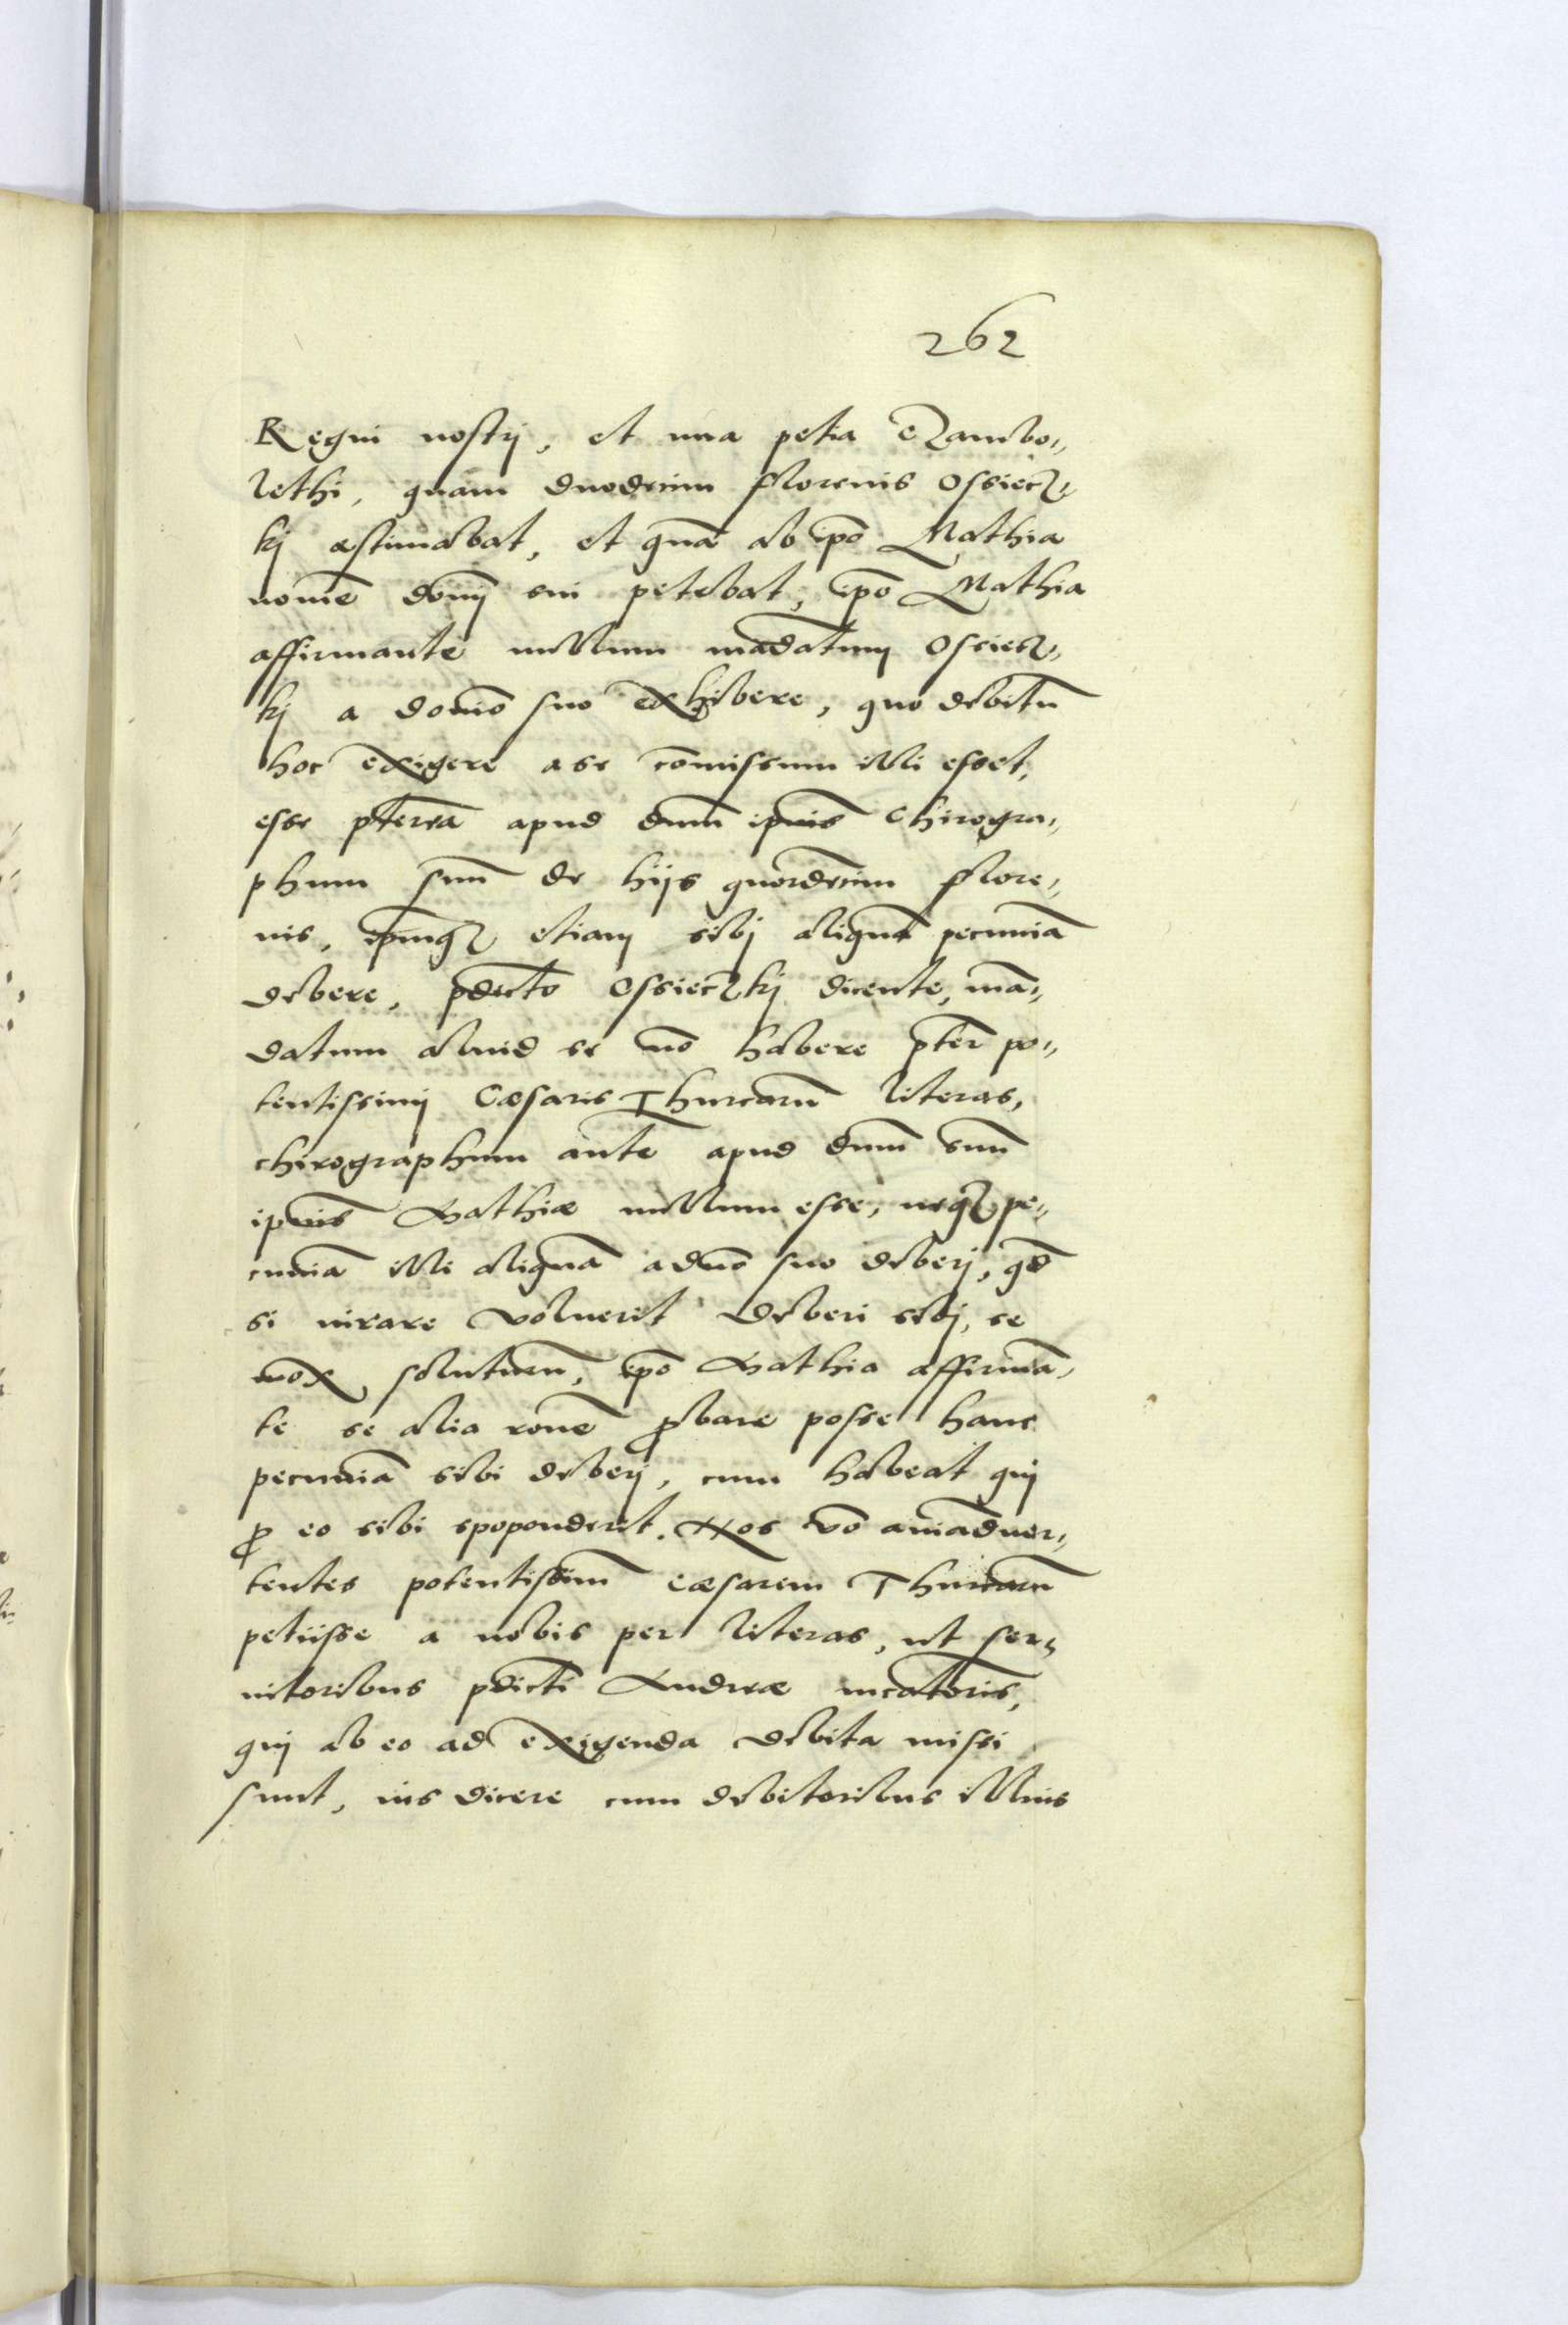 262
Regni nostrj, et una petia czambo„
lethi, quam duodecim florenis Ossiecz„
kj æstimabat, et quã ab ip̃o Mathia
nomiẽ dom̃j sui petebat, ip̃o Mathia
affirmante nullum mãdatum Ossiecz„
kj a domĩo suo exhibere, quo debitũ
hoc exigere a se com̃issum illi esset,
esse pterẽa apud dnũm ipiũs Chirogra„
phum suũ de hijs quordẽcim flore„
nis, ipm̃q̃ etiam sibj aliquã pecuniã
debere, pdicto Ossieczkj dicente, mã„
datum aliud se nõ habere ptẽr po„
tentissimj Cæsaris Thurcarũ literas,
chirographum aũte apud dnũm suũ
ipiũs Mathiæ nullum esse, neq̃ pe„
cuniã illi aliquã a dnõ suo deberj, qđ
si iurare voluerit deberi sibj, se
mox soluturũ, ip̃o Mathia affirmã„
te se alia rõne probare posse hanc
pecuniã sibi deberj, cum habeat quj
p eo sibi spoponderit. Nos võ aniãduer„
tentes potentissimũ Cæsarem Thurcarũ
petiisse a nobis per literas, ut ser„
uitoribus pdicti Andreæ mcatoris,
quj ab eo ad exigenda debita missi
sunt, ius dicere cum debitoribus illius